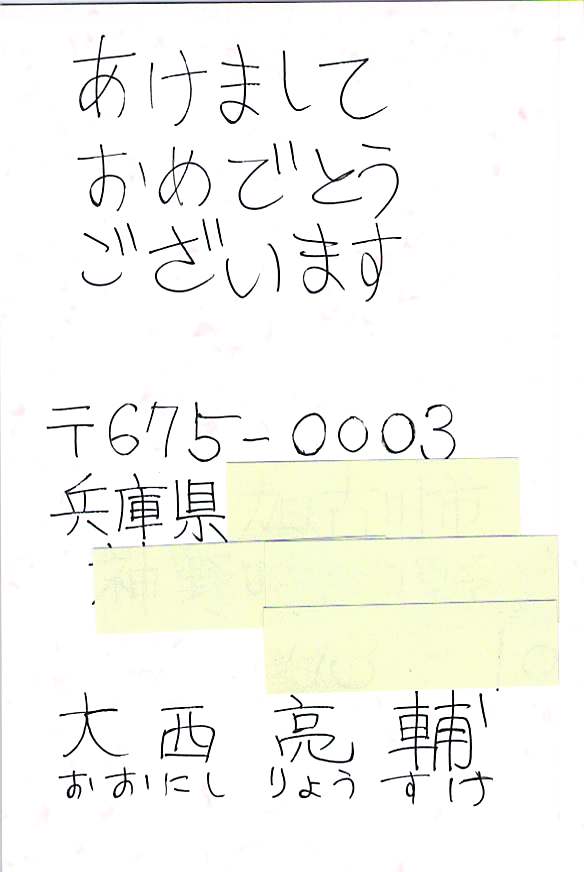 あけまして
おめでとう
ございます
〒675-0003
兵庫県
大西 亮輔
おおにし りょうすけ